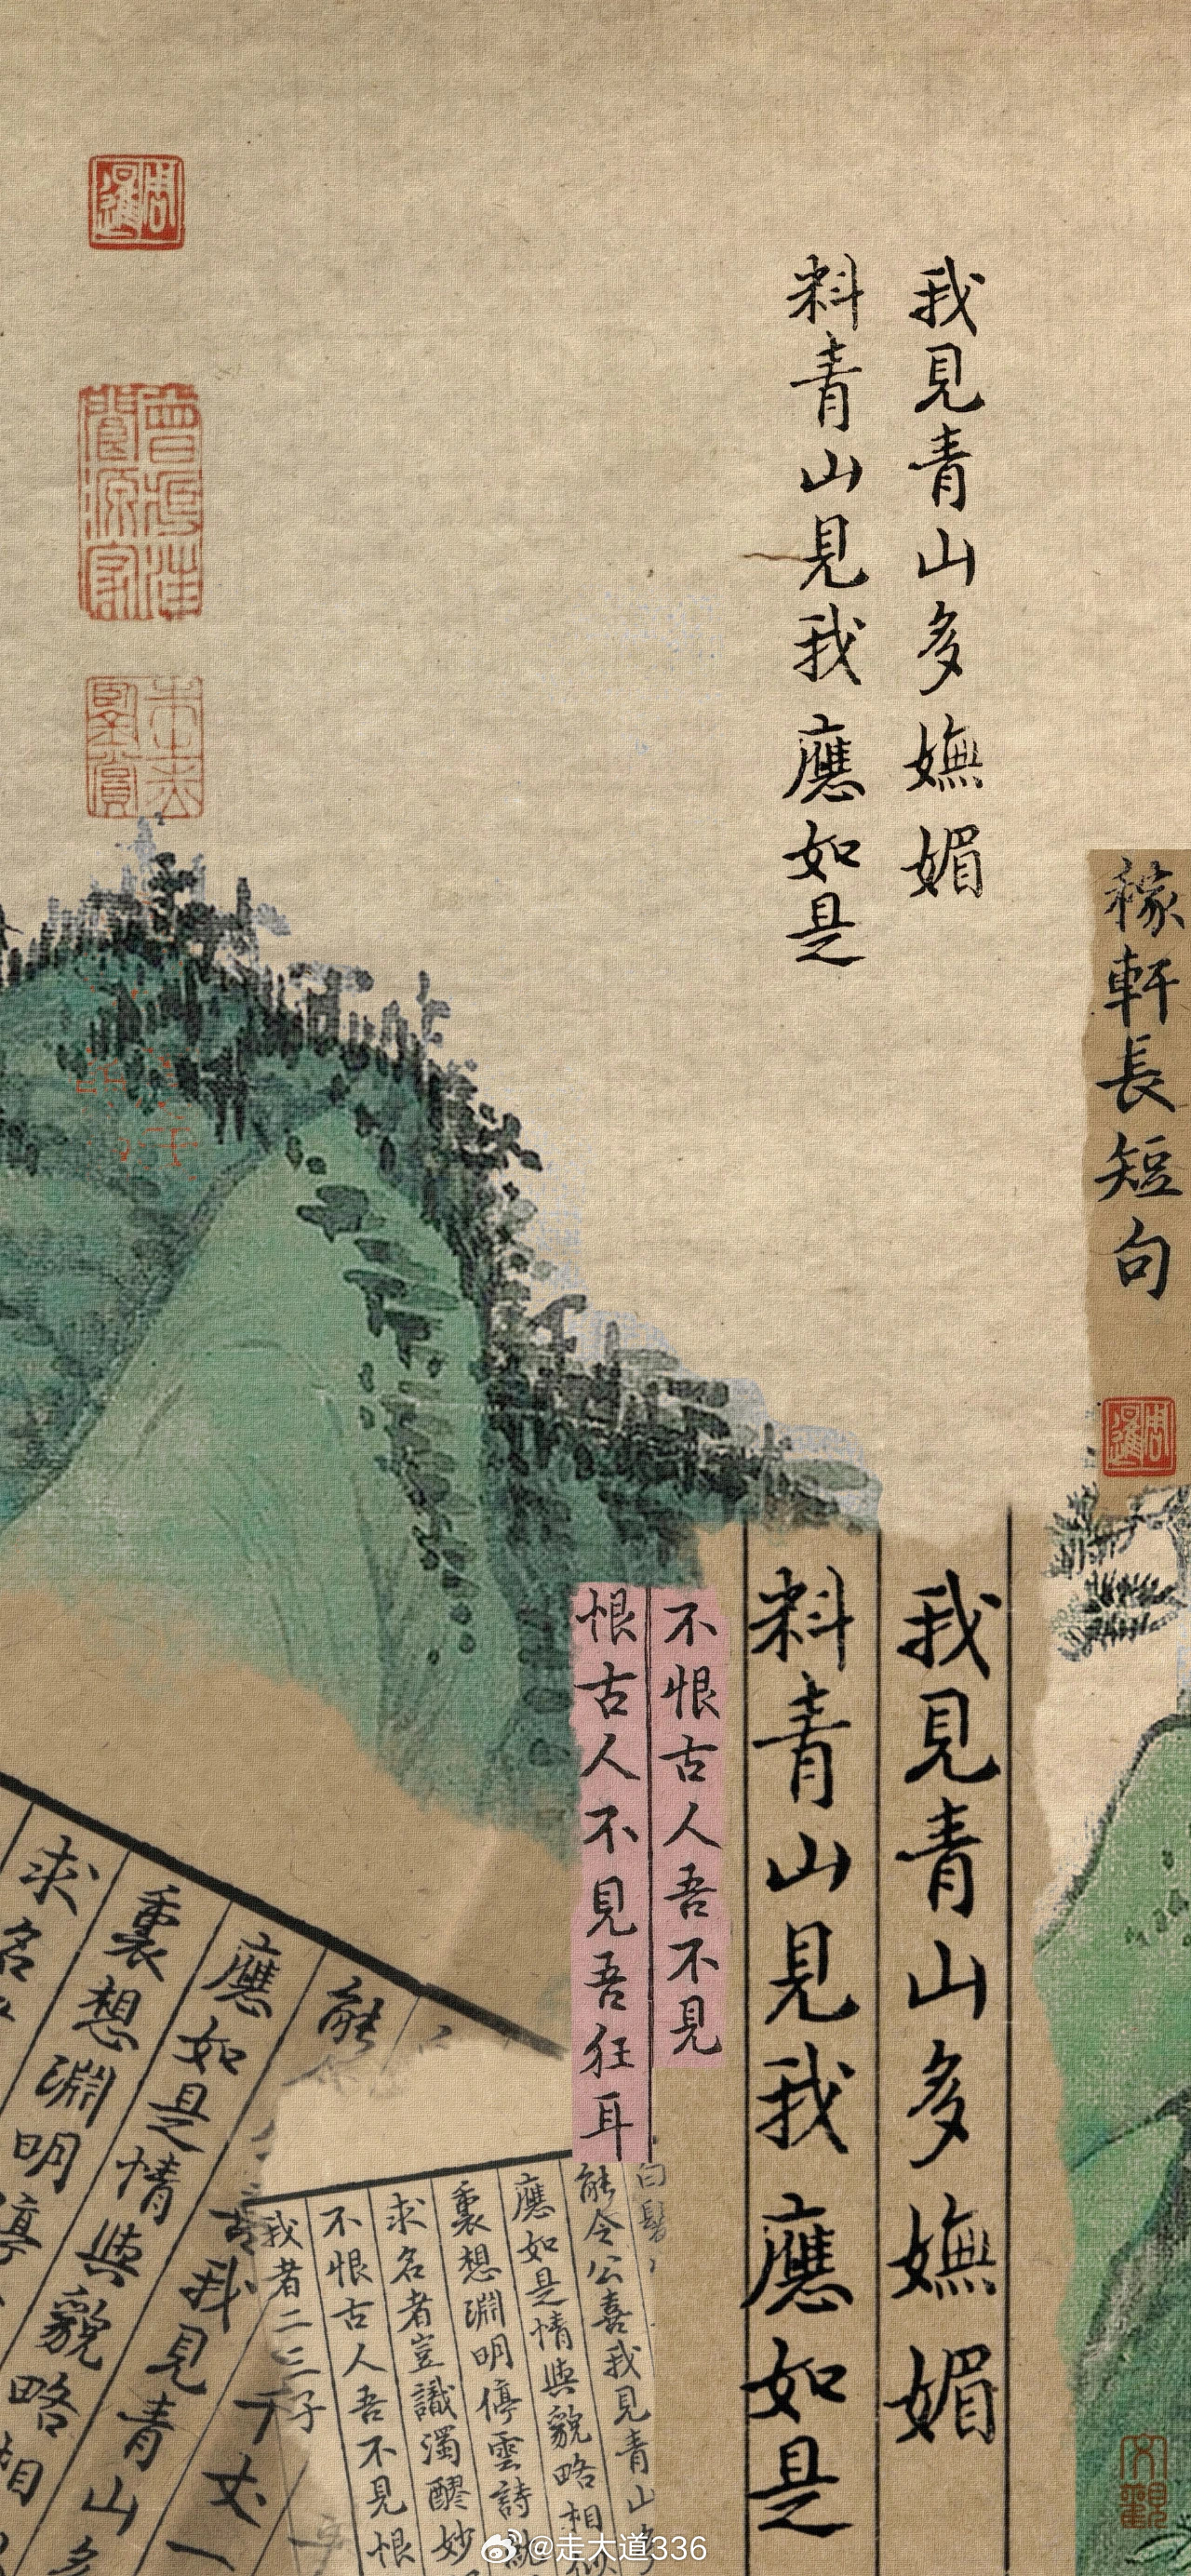 我見青山多嫵媚
料青山見我應如是
稼軒長短句
我見青山多嫵媚
料青山見我應如是
不恨古人吾不見
恨古人不見吾狂耳
能
應如是情與貌略相
裏想淵明停
求名
我見青山多
千丈一
白髮
能令公喜我見青山多
應如是情與貌略相似
裏想淵明停雲詩就
求名者豈識濁醪妙
不恨古人吾不見恨
我者二三子
@走大道336